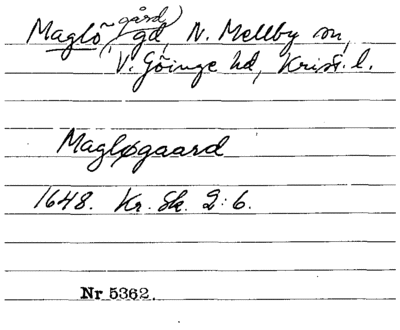 gård
Maglö, gd, N. Mellby sn,
V. Göinge hd, Krist. l.
Magløgaard
1648. Kr. Sk. 2:6.
Nr 5362.